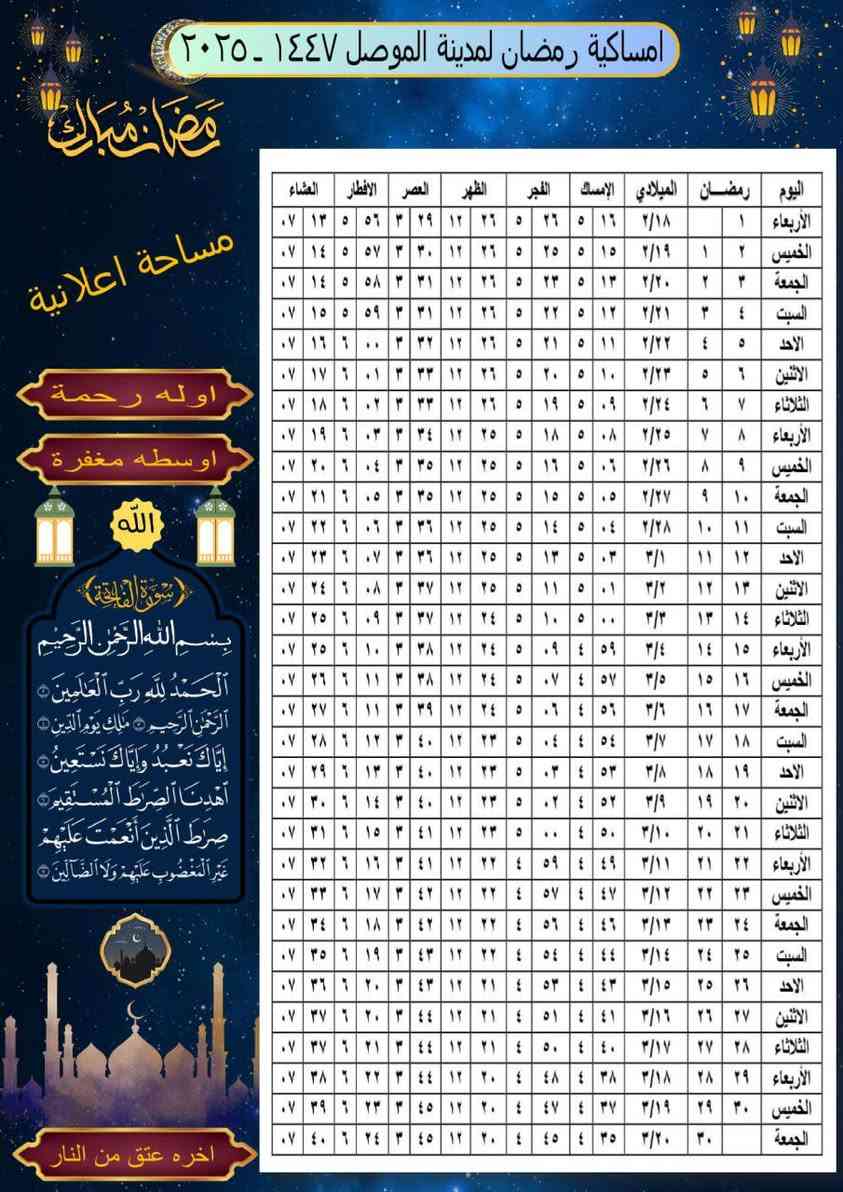 امساكية رمضان لمدينة الموصل ١٤٤٧ ـ ٢٠٢٥
رمضان مبارك
مساحة اعلانية
اوله رحمة
اوسطه مغفرة
الله
سورة الفاتحة
بِسْمِ اللَّهِ الرَّحْمَٰنِ الرَّحِيمِ
الْحَمْدُ لِلَّهِ رَبِّ الْعَالَمِينَ
الرَّحْمَٰنِ الرَّحِيمِ مَالِكِ يَوْمِ الدِّينِ
إِيَّاكَ نَعْبُدُ وَإِيَّاكَ نَسْتَعِينُ
اهْدِنَا الصِّرَاطَ الْمُسْتَقِيمَ
صِرَاطَ الَّذِينَ أَنْعَمْتَ عَلَيْهِمْ
غَيْرِ الْمَغْضُوبِ عَلَيْهِمْ وَلَا الضَّالِّينَ
اخره عتق من النار
اليوم رمضـــان الميلادي الإمساك الفجر الظهر العصر الافطار العشاء
الأربعاء ١ ٢/١٨ ١٦ ٥ ٢٦ ٥ ٢٦ ١٢ ٢٩ ٣ ٥٦ ٥ ١٣ ٠٧
الخميس ٢ ١ ٢/١٩ ١٥ ٥ ٢٥ ٥ ٢٦ ١٢ ٣٠ ٣ ٥٧ ٥ ١٤ ٠٧
الجمعة ٣ ٢ ٢/٢٠ ١٣ ٥ ٢٣ ٥ ٢٦ ١٢ ٣١ ٣ ٥٨ ٥ ١٤ ٠٧
السبت ٤ ٣ ٢/٢١ ١٢ ٥ ٢٢ ٥ ٢٦ ١٢ ٣١ ٣ ٥٩ ٥ ١٥ ٠٧
الاحد ٥ ٤ ٢/٢٢ ١١ ٥ ٢١ ٥ ٢٦ ١٢ ٣٢ ٣ ٠٠ ٦ ١٦ ٠٧
الاثنين ٦ ٥ ٢/٢٣ ١٠ ٥ ٢٠ ٥ ٢٦ ١٢ ٣٣ ٣ ٠١ ٦ ١٧ ٠٧
الثلاثاء ٧ ٦ ٢/٢٤ ٠٩ ٥ ١٩ ٥ ٢٦ ١٢ ٣٣ ٣ ٠٢ ٦ ١٨ ٠٧
الأربعاء ٨ ٧ ٢/٢٥ ٠٨ ٥ ١٨ ٥ ٢٥ ١٢ ٣٤ ٣ ٠٣ ٦ ١٩ ٠٧
الخميس ٩ ٨ ٢/٢٦ ٠٦ ٥ ١٦ ٥ ٢٥ ١٢ ٣٥ ٣ ٠٤ ٦ ٢٠ ٠٧
الجمعة ١٠ ٩ ٢/٢٧ ٠٥ ٥ ١٥ ٥ ٢٥ ١٢ ٣٥ ٣ ٠٥ ٦ ٢١ ٠٧
السبت ١١ ١٠ ٢/٢٨ ٠٤ ٥ ١٤ ٥ ٢٥ ١٢ ٣٦ ٣ ٠٦ ٦ ٢٢ ٠٧
الاحد ١٢ ١١ ٣/١ ٠٣ ٥ ١٣ ٥ ٢٥ ١٢ ٣٦ ٣ ٠٧ ٦ ٢٣ ٠٧
الاثنين ١٣ ١٢ ٣/٢ ٠١ ٥ ١١ ٥ ٢٥ ١٢ ٣٧ ٣ ٠٨ ٦ ٢٤ ٠٧
الثلاثاء ١٤ ١٣ ٣/٣ ٠٠ ٥ ١٠ ٥ ٢٤ ١٢ ٣٧ ٣ ٠٩ ٦ ٢٥ ٠٧
الأربعاء ١٥ ١٤ ٣/٤ ٥٩ ٤ ٠٩ ٥ ٢٤ ١٢ ٣٨ ٣ ١٠ ٦ ٢٥ ٠٧
الخميس ١٦ ١٥ ٣/٥ ٥٧ ٤ ٠٧ ٥ ٢٤ ١٢ ٣٨ ٣ ١١ ٦ ٢٦ ٠٧
الجمعة ١٧ ١٦ ٣/٦ ٥٦ ٤ ٠٦ ٥ ٢٤ ١٢ ٣٩ ٣ ١١ ٦ ٢٧ ٠٧
السبت ١٨ ١٧ ٣/٧ ٥٤ ٤ ٠٤ ٥ ٢٣ ١٢ ٤٠ ٣ ١٢ ٦ ٢٨ ٠٧
الاحد ١٩ ١٨ ٣/٨ ٥٣ ٤ ٠٣ ٥ ٢٣ ١٢ ٤٠ ٣ ١٣ ٦ ٢٩ ٠٧
الاثنين ٢٠ ١٩ ٣/٩ ٥٢ ٤ ٠٢ ٥ ٢٣ ١٢ ٤٠ ٣ ١٤ ٦ ٣٠ ٠٧
الثلاثاء ٢١ ٢٠ ٣/١٠ ٥٠ ٤ ٠٠ ٥ ٢٣ ١٢ ٤١ ٣ ١٥ ٦ ٣١ ٠٧
الأربعاء ٢٢ ٢١ ٣/١١ ٤٩ ٤ ٥٩ ٤ ٢٢ ١٢ ٤١ ٣ ١٦ ٦ ٣٢ ٠٧
الخميس ٢٣ ٢٢ ٣/١٢ ٤٧ ٤ ٥٧ ٤ ٢٢ ١٢ ٤٢ ٣ ١٧ ٦ ٣٣ ٠٧
الجمعة ٢٤ ٢٣ ٣/١٣ ٤٦ ٤ ٥٦ ٤ ٢٢ ١٢ ٤٢ ٣ ١٨ ٦ ٣٤ ٠٧
السبت ٢٥ ٢٤ ٣/١٤ ٤٤ ٤ ٥٤ ٤ ٢٢ ١٢ ٤٣ ٣ ١٩ ٦ ٣٥ ٠٧
الاحد ٢٦ ٢٥ ٣/١٥ ٤٣ ٤ ٥٣ ٤ ٢١ ١٢ ٤٣ ٣ ٢٠ ٦ ٣٦ ٠٧
الاثنين ٢٧ ٢٦ ٣/١٦ ٤١ ٤ ٥١ ٤ ٢١ ١٢ ٤٤ ٣ ٢٠ ٦ ٣٧ ٠٧
الثلاثاء ٢٨ ٢٧ ٣/١٧ ٤٠ ٤ ٥٠ ٤ ٢١ ١٢ ٤٤ ٣ ٢١ ٦ ٣٧ ٠٧
الأربعاء ٢٩ ٢٨ ٣/١٨ ٣٨ ٤ ٤٨ ٤ ٢٠ ١٢ ٤٤ ٣ ٢٢ ٦ ٣٨ ٠٧
الخميس ٣٠ ٢٩ ٣/١٩ ٣٧ ٤ ٤٧ ٤ ٢٠ ١٢ ٤٥ ٣ ٢٣ ٦ ٣٩ ٠٧
الجمعة ٣٠ ٣/٢٠ ٣٥ ٤ ٤٥ ٤ ٢٠ ١٢ ٤٥ ٣ ٢٤ ٦ ٤٠ ٠٧